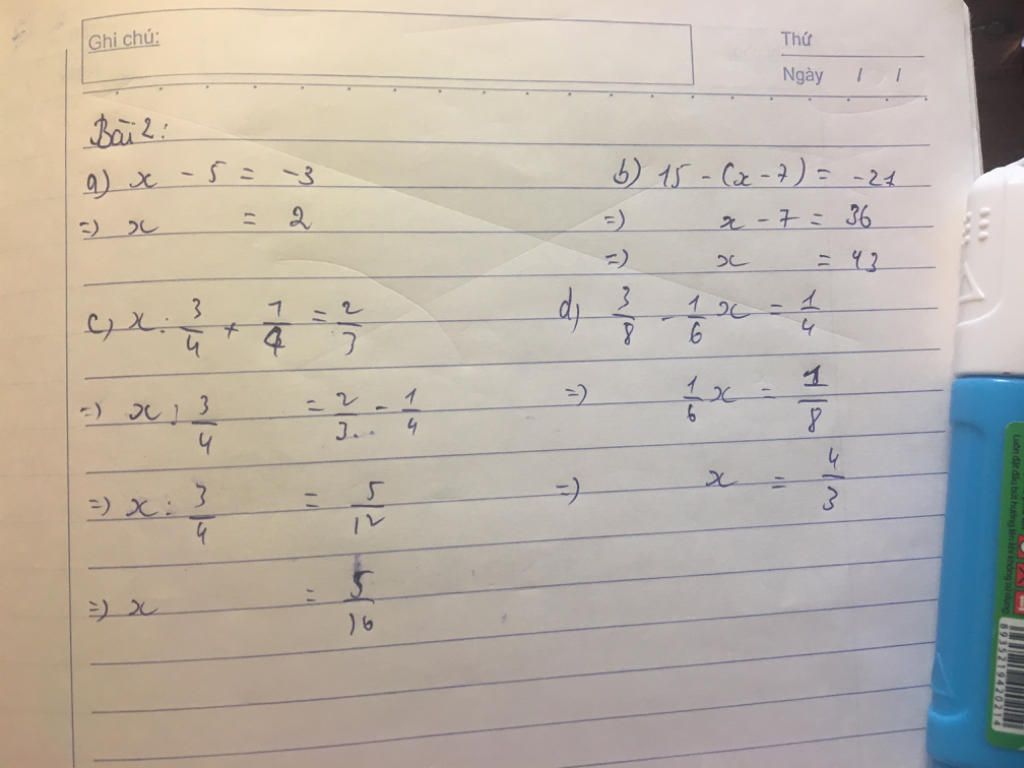 Ghi chú:
Thứ
Ngày / /
Bài 2:
a) x - 5 = -3
=) x = 2
b) 15 - (x - 7) = -21
=) x - 7 = 36
=) x = 43
c) x : 3/4 + 1/4 = 2/3
=) x : 3/4 = 2/3 - 1/4
=) x : 3/4 = 5/12
=) x = 5/16
d) 3/8 - 1/6 x = 1/4
=) 1/6 x = 1/8
=) x = 4/3
8935219420214